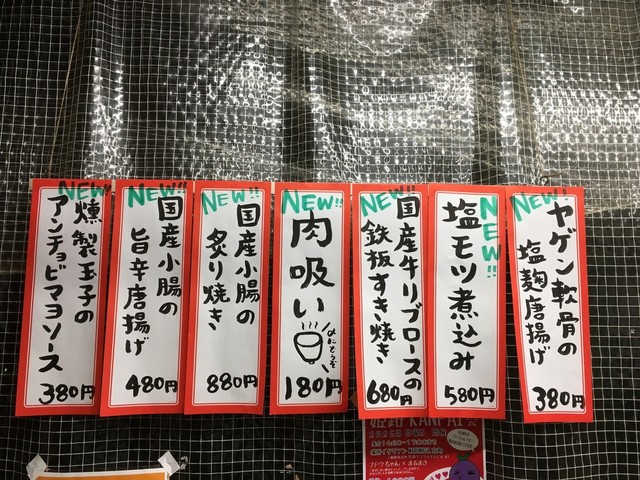 NEW!!
ヤゲン軟骨の
塩麹唐揚げ
380円
NEW!!
塩モツ煮込み
580円
NEW!!
国産牛リブロースの
鉄板すき焼き
680円
NEW!!
肉吸い
180円
NEW!!
国産小腸の
炙り焼き
880円
NEW!!
国産小腸の
旨辛唐揚げ
480円
NEW!!
燻製玉子の
アンチョビマヨソース
380円
姫路 KANPAI 会